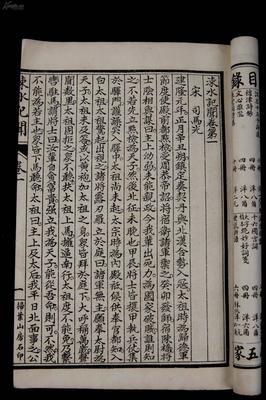 涑水記聞卷第一
宋 司馬光
建隆元年正月辛丑朔鎮定奏契丹與北漢合勢入寇太祖時為歸德軍
節度使殿前都點檢受周恭帝詔將宿衛諸軍禦之癸卯發師宿陳橋將
士陰相與謀曰主上幼弱未能親政今我輩出死力為國家破賊誰則知
之不如先立點檢為天子然後北征未晚也甲辰將士皆擐甲執兵仗集
於驛門讙譟突入驛中太祖尚未起太宗時為內殿祗候供奉官都知入
白太祖太祖驚起出視之諸將露刃羅立於庭曰諸軍無主願奉太尉為
天子太祖未及答或以黃袍加太祖之身眾皆拜於庭下大呼稱萬歲聲
聞數里太祖固拒之眾不聽扶太祖上馬擁逼南行太祖度不能免乃繫
轡駐馬謂將士曰汝輩自貪富貴強立我為天子能從我命則可不然我
不能為若主也眾皆下馬聽命太祖曰主上及太后我平日北面事之公
涑水記聞
卷一
掃葉山房石印
目錄
五